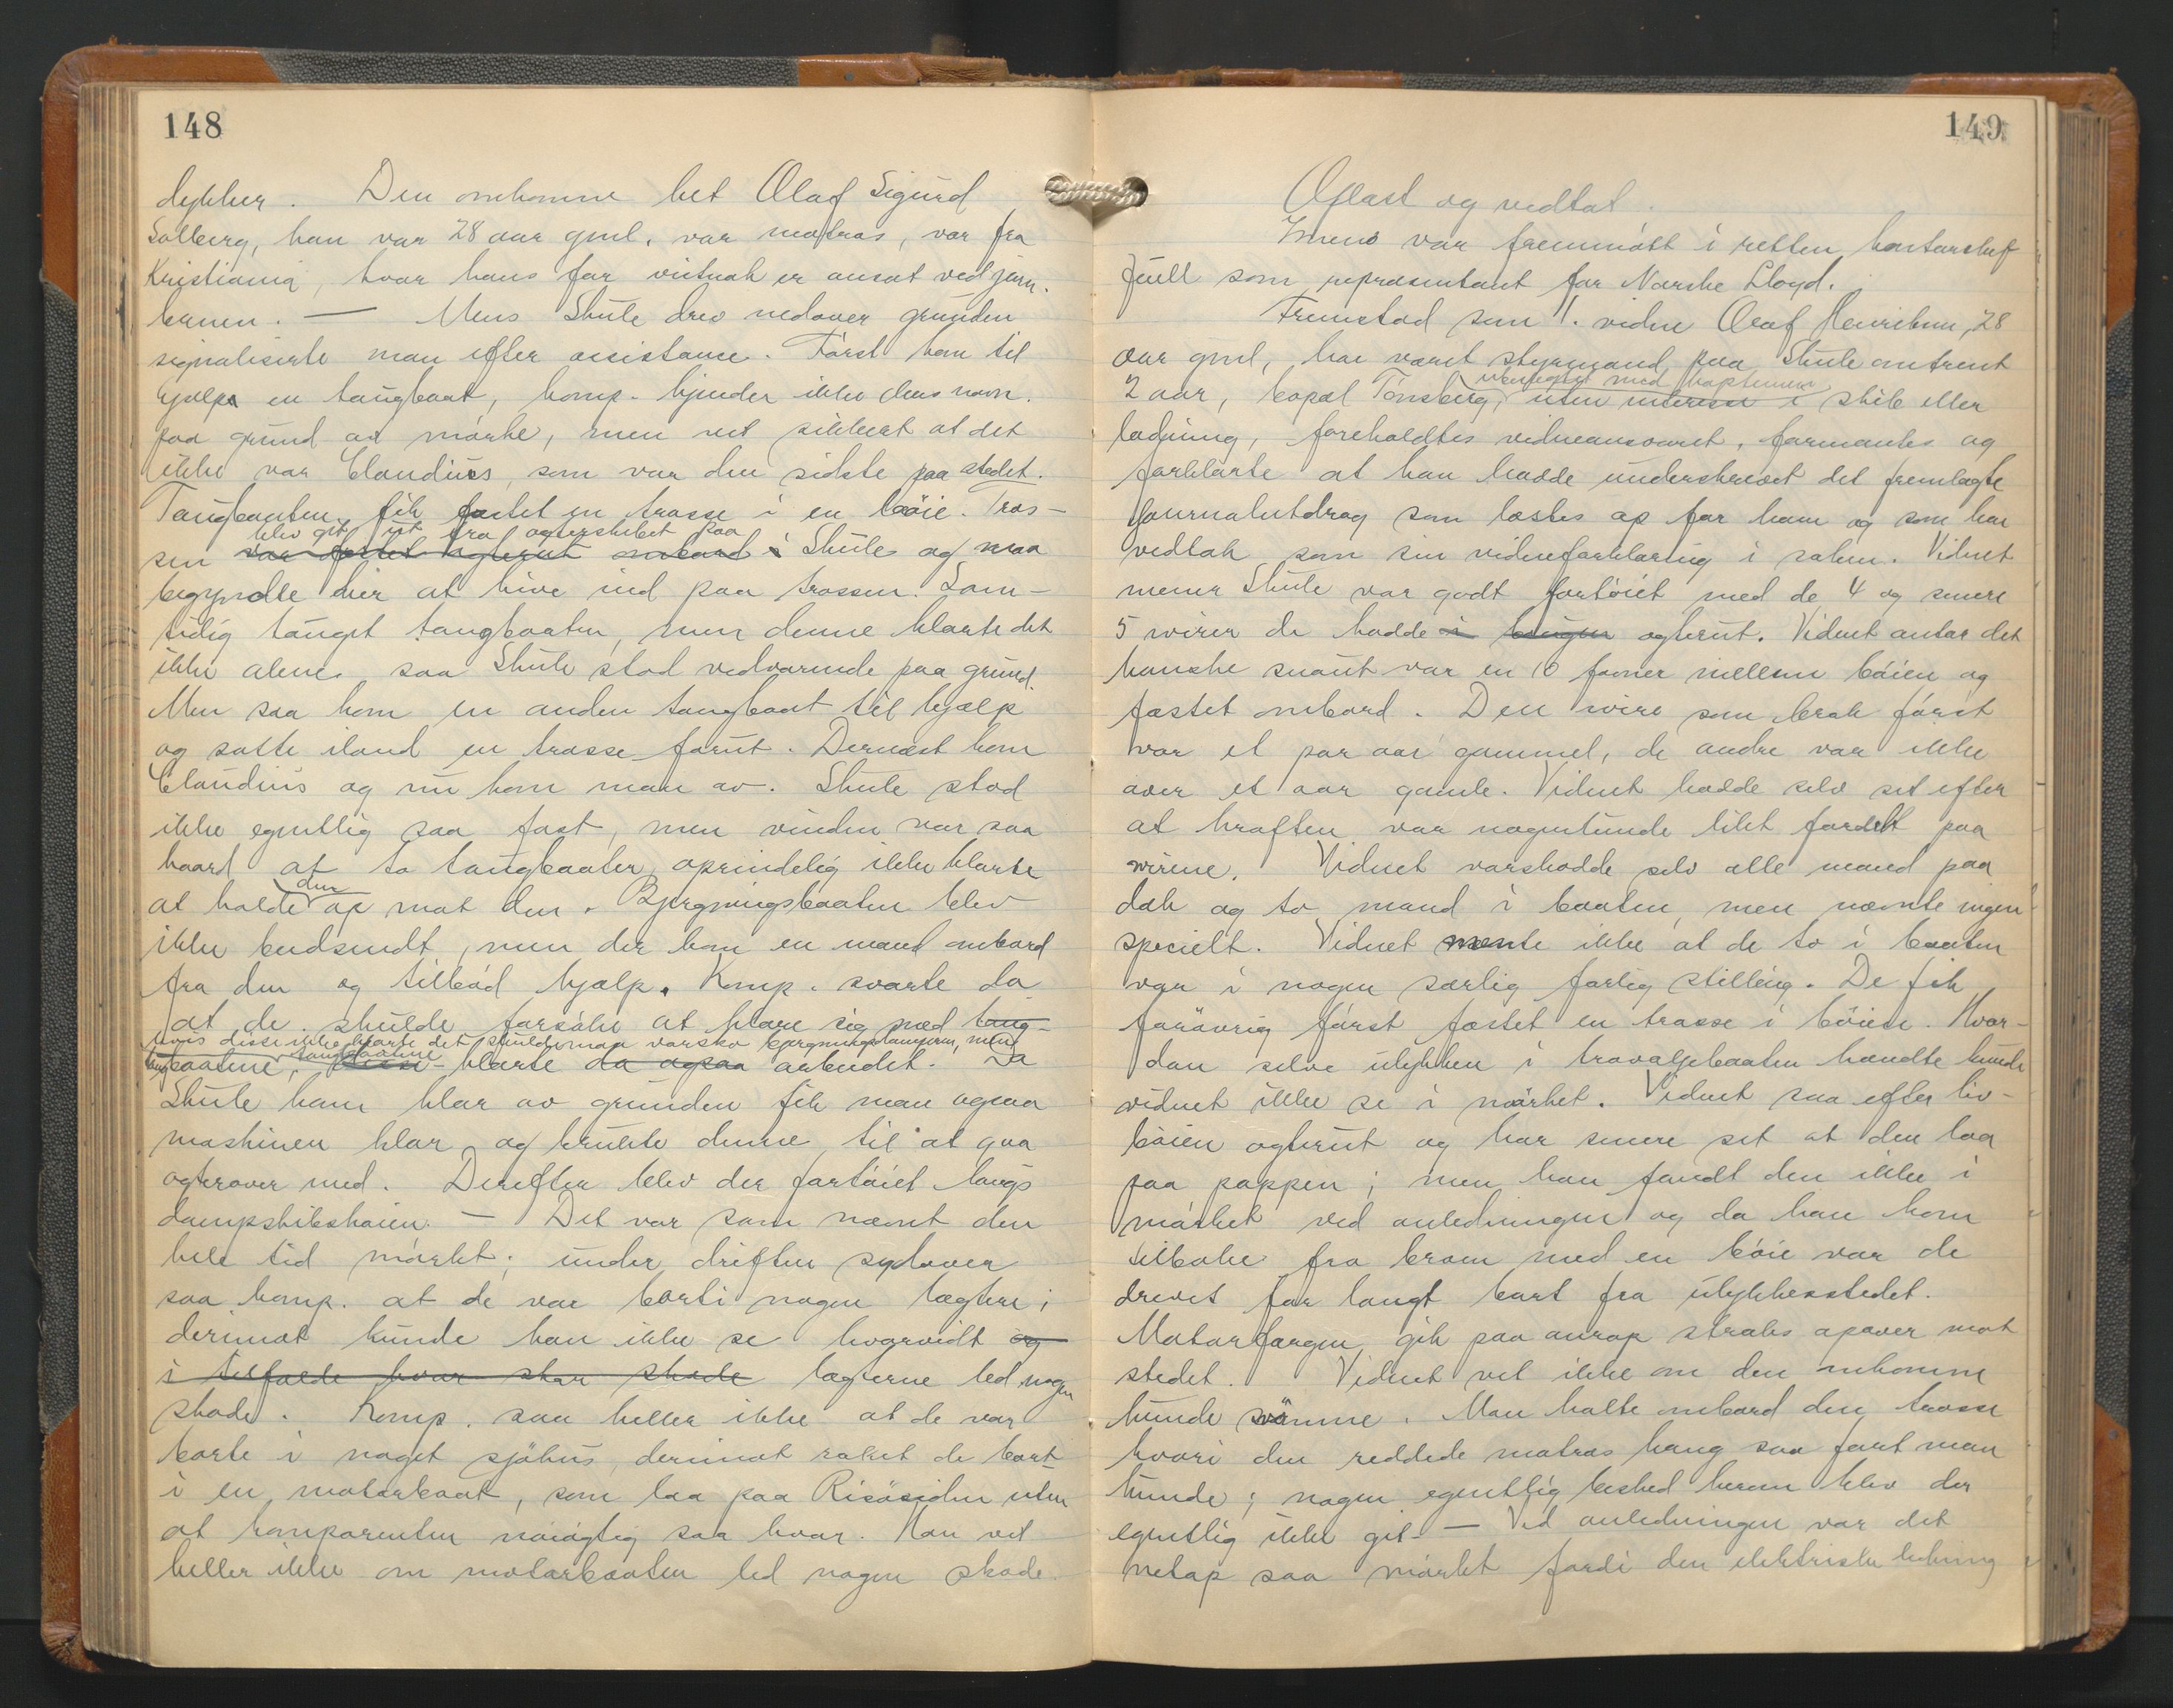 148
dykker. Den omkomne het Olaf Sigurd
Solberg, han var 28 aar gml., var matros, var fra
Kristiania, hvor hans far vistnok er ansat ved jern-
banen. — Mens Skule drev nedover grunden
signaliserte man efter assistance. Först kom til
hjelp en taugbaat, komp. kjender ikke dens navn.
paa grund av mörke, men vet sikkert at det
ikke var Claudius, som var den sidste paa stedet.
Taugbaaten fik fæstet en trosse i en böie. Tros-
blev git ut fra agterskibet paa
sen var fæstet agterut ombord i Skule og man
begyndte her at hive ind paa trossen. Sam-
tidig tauget taugbaaten, men denne klarte det
ikke alene, saa Skule stod vedvarende paa grund.
Men saa kom en anden taugbaat til hjælp
og satte iland en trosse forut. Dernæst kom
Claudius og nu kom man av. Skule stod
ikke egentlig saa fast, men vinden var saa
haard at to taugbaater oprindelig ikke klarte
den
at holde op mot den. Bjergningsbaaten blev
ikke budsendt, men der kom en mand ombord
fra den og tilböd hjælp. Komp. svarte da
at de skulde forsöke at klare sig med taug-
hvis disse ikke klarte det skulde man varsko bjergningsdamperen, men
taugbaatene
taugbaatene, disse klarte da ogsaa arbeidet. Da
Skule kom klar av grunden fik man ogsaa
maskinen klar og brukte denne til at gaa
agterover med. Derefter blev der fortöiet langs
dampskibskaien. — Det var som nævnt den
hele tid mörkt; under driften sydover
saa komp. at de var borti nogen lægtere;
derimot kunde han ikke se hvorvidt og
i tilfælde hvor stor skade lægterne led nogen
skade. Komp. saa heller ikke at de var
borte i noget sjöhus, derimot raket de bort
i en motorbaat, som laa paa Risösiden uten
at komparenten nöiagtig saa hvor. Han vet
heller ikke om motorbaaten led nogen skade.
149
Oplæst og vedtat.
Imens var fremmött i retten kontorchef
Juell som repræsentant for Norske Lloyd.
Fremstod som 1. vidne Olaf Henriksen, 28
aar gml, har været styrmand paa Skule omtrent
ubeslegtet med kapteinen
2 aar, bopæl Tönsberg, uten interesse i skib eller
ladning, foreholdtes vidneansvaret, formantes og
forklarte at han hadde underskrevet det fremlagte
Journalutdrag som læstes op for ham og som han
vedtok som sin vidneforklaring i saken. Vidnet
mener Skule var godt fortöiet med de 4 og senere
5 wirer de hadde i baugen agterut. Vidnet antar det
kanske snaut var en 10 favner mellem böien og
fæstet ombord. Den wire som brak först
var et par aar gammel, de andre var ikke
over et aar gamle. Vidnet hadde selv set efter
at kraften var nogenlunde likt fordelt paa
wirene. Vidnet varskodde selv alle mand paa
dæk og to mand i baaten, men nævnte ingen
specielt. Vidnet mente ikke at de to i baaten
var i nogen særlig farlig stilling. De fik
forövrig först fæstet en trosse i böien. Hvor-
dan selve ulykken i travaljebaaten hændte kunde
vidnet ikke se i mörket. Vidnet saa efter liv-
böien agterut og har senere set at den laa
paa poppen; men han fandt den ikke i
mörket ved anledningen og da han kom
tilbake fra broen med en böie var de
drevet for langt bort fra ulykkesstedet.
Motorfærgen gik paa anrop straks opover mot
stedet. Vidnet vet ikke om den omkomne
kunde svömme. Man halte ombord den trosse
hvori den reddede matros hang saa fort man
kunde; nogen egentlig besked herom blev der
egentlig ikke git. — Ved anledningen var det
netop saa mörkt fordi den elektriske ledning